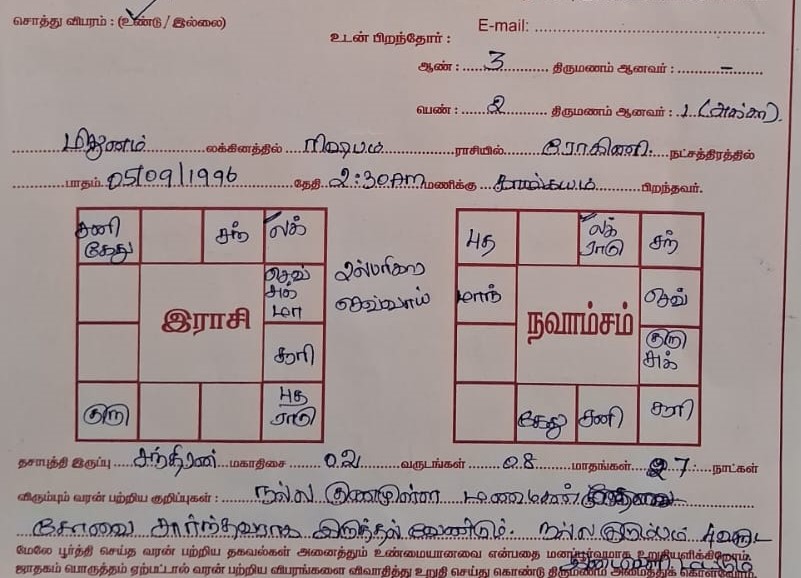 சொத்து விபரம் : (உண்டு / இல்லை)
உடன் பிறந்தோர் :
E-mail:
ஆண் : 3 திருமணம் ஆனவர் : –
பெண் : 2 திருமணம் ஆனவர் : 1 (அக்கா).
மிதுனம் லக்கினத்தில் ரிஷபம் ராசியில் ரோகிணி நட்சத்திரத்தில்
பாதம் 05/09/1996 தேதி 2:30 AM மணிக்கு பிறந்தவர்.
சனி கேது
சந்
லக்
செவ் சுக் மா
சூரி
புத ராகு
குரு
இராசி
செவ்வாய்
புத
லக் ராகு
சந்
மாந்
செவ்
குரு சுக்
சூரி
சனி
கேது
நவாம்சம்
தசாபுத்தி இருப்பு சந்திரன் மகாதிசை 02 வருடங்கள் 08 மாதங்கள் 27 நாட்கள்
விரும்பும் வரன் பற்றிய குறிப்புகள் : நல்ல குணமுள்ள மணமகன்
கோவை சார்ந்தவராக இருத்தல் வேண்டும். நல்ல குடும்பம்
மேலே பூர்த்தி செய்த வரன் பற்றிய தகவல்கள் அனைத்தும் உண்மையானவை என்பதை மனப்பூர்வமாக உறுதியளிக்கிறோம்.
ஜாதகம் பொருத்தம் ஏற்பட்டால் வரன் பற்றிய விபரங்களை விவாதித்து உறுதி செய்து கொண்டு திருமணம் அமைத்துக் கொள்கிறோம்.